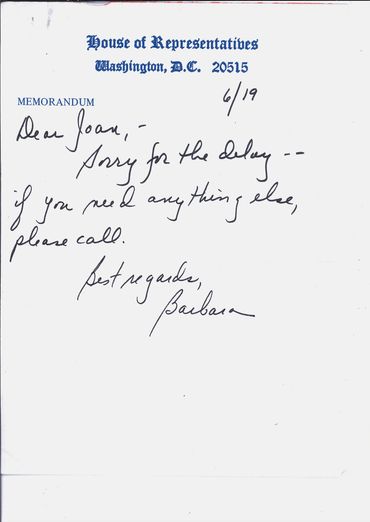 House of Representatives
Washington, D.C. 20515
6/19
MEMORANDUM
Dear Joan, -
Sorry for the delay --
if you need anything else,
please call.
Best regards,
Barbara